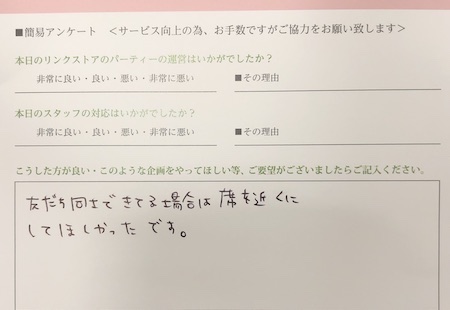 ■簡易アンケート　＜サービス向上の為、お手数ですがご協力をお願い致します＞
本日のリンクストアのパーティーの運営はいかがでしたか？
非常に良い・良い・悪い・非常に悪い　■その理由
本日のスタッフの対応はいかがでしたか？
非常に良い・良い・悪い・非常に悪い　■その理由
こうした方が良い・このような企画をやってほしい等、ご要望がございましたらご記入ください。
友だち同士できてる場合は席を近くに
してほしかったです。